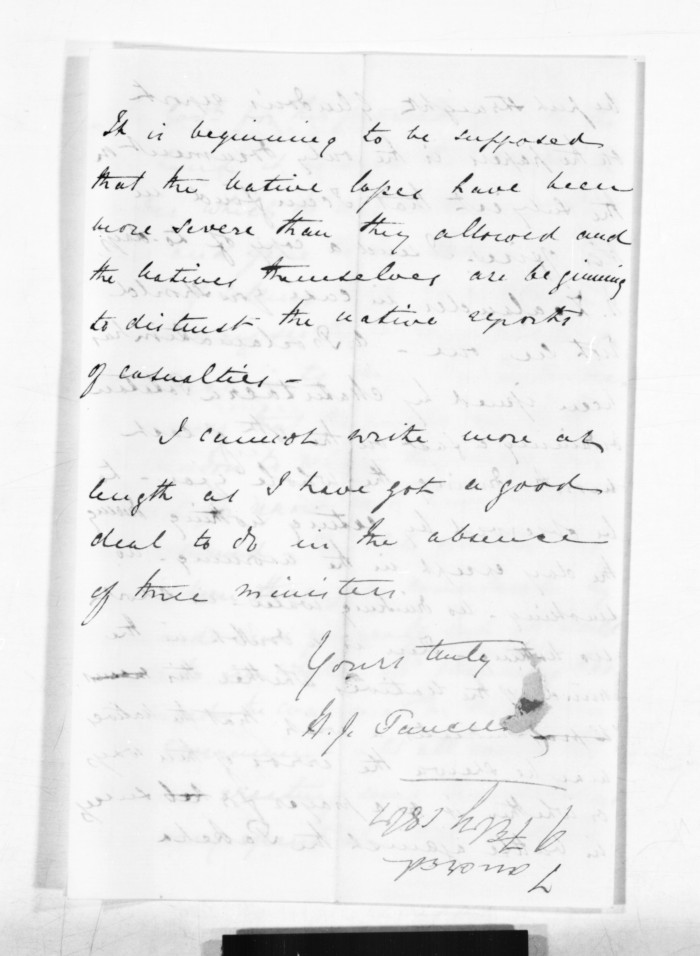 It is beginning to be supposed
that the native loss have been
more severe than they allowed and
the natives themselves are beginning
to distrust the native reports
of casualties -
I cannot write more at
length as I have got a good
deal to do in the absence
of three ministers
Yours truly
H. J. Tancred
Tancred
9 Feby 1861